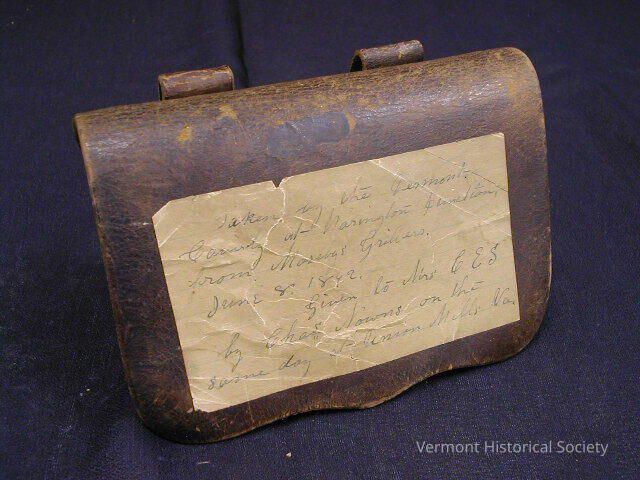 Taken by the Vermont
Cavalry at Warington Junction,
from Mosevas Grillers.
June 8. 1842.
Given to Mrs C E S
by Chas on the
same day at Union Mills Va.
Vermont Historical Society